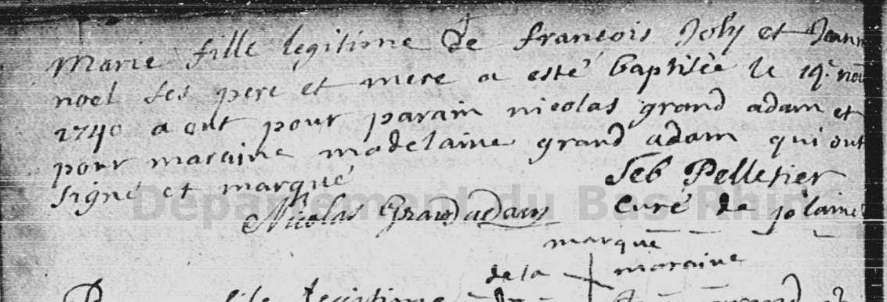 Marie fille legitime de françois Joly et Jeann
noel ses pere et mere a esté baptisèe le 19e nov
1740 a eut pour parain nicolas grand adam et
pour maraine madelaine grand adam qui ont
signé et marqué
Seb Pelletier
Nicolas Grandadam
curé de jolaine
marque
de la maraine
fille legitime de
Département du Bas-Rhin